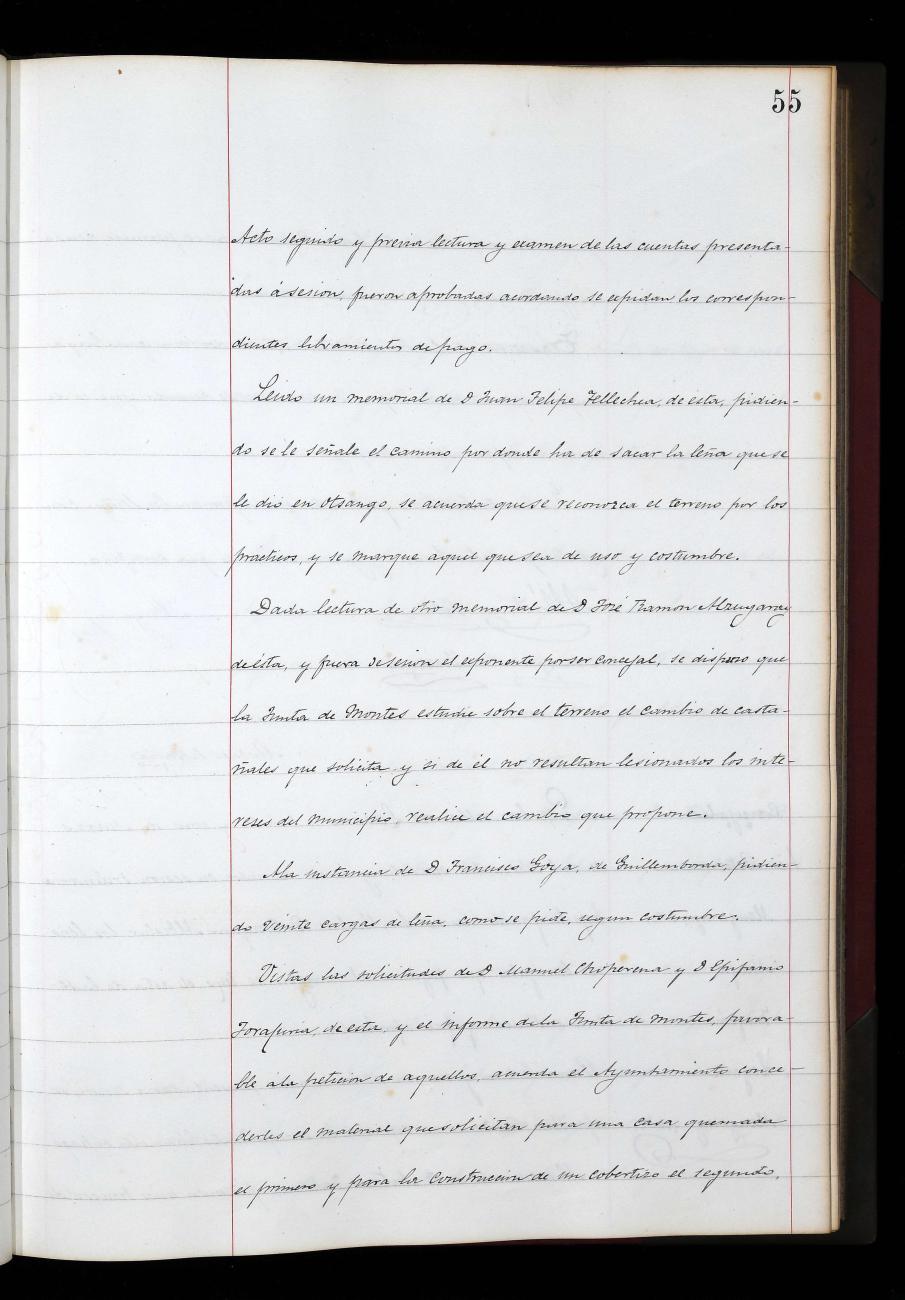 55
Acto seguido y previa lectura y examen de las cuentas presenta-
das á sesion, fueron aprobadas acordando se expidan los correspon-
dientes libramientos de pago.
Leido un memorial de D Juan Felipe Tellechea, de esta, pidien-
do se le señale el camino por donde ha de sacar la leña que se
le dió en Otsango, se acuerda que se reconozca el terreno por los
prácticos, y se marque aquel que sea de uso y costumbre.
Dada lectura de otro memorial de D José Ramon Alzugaray
de ésta, y fuera de sesion el exponente por ser concejal, se dispuso que
la Junta de Montes estudie sobre el terreno el cambio de casta-
ñales que solicita y si de él no resultan lesionados los inte-
reses del municipio, realice el cambio que propone.
A la instancia de D Francisco Goya, de Guillemborda, pidien-
do veinte cargas de leña, como se pide, segun costumbre.
Vistas las solicitudes de D Manuel Choperena y D Epifanio
de esta, y el informe de la Junta de montes, favora-
ble á la peticion de aquellos, acuerda el Ayuntamiento conce-
derles el material que solicitan para una casa quemada
el primero y para la construccion de un cobertizo el segundo,